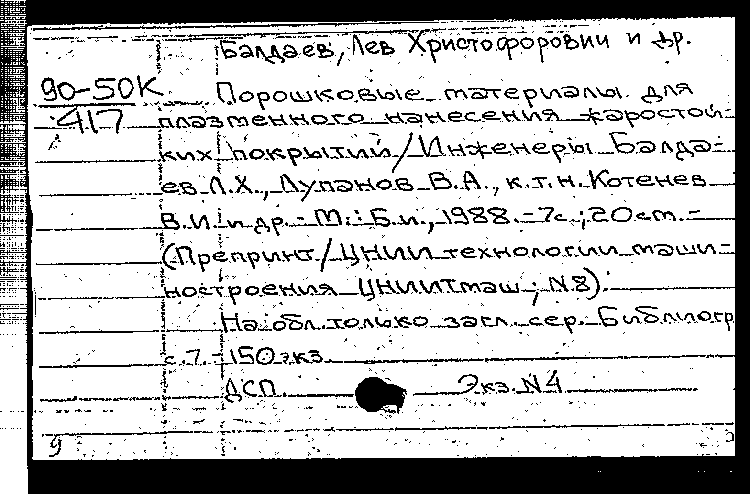 Балдаев, Лев Христофорович и др.
90-50К
417
Порошковые материалы для
плазменного нанесения жаростой-
ких покрытий/Инженеры Балда-
ев Л.Х., Лупанов В.А., к.т.н. Котенев
В.И. и др.- М.: Б.и., 1988.- 7с.; 20 см.-
(Препринт/ЦНИИ технологии маши-
ностроения ЦНИИТмаш; N8).
На обл. только загл. сер.- Библиогр
с. 7.- 150 экз.
ДСП. Экз. N4
9